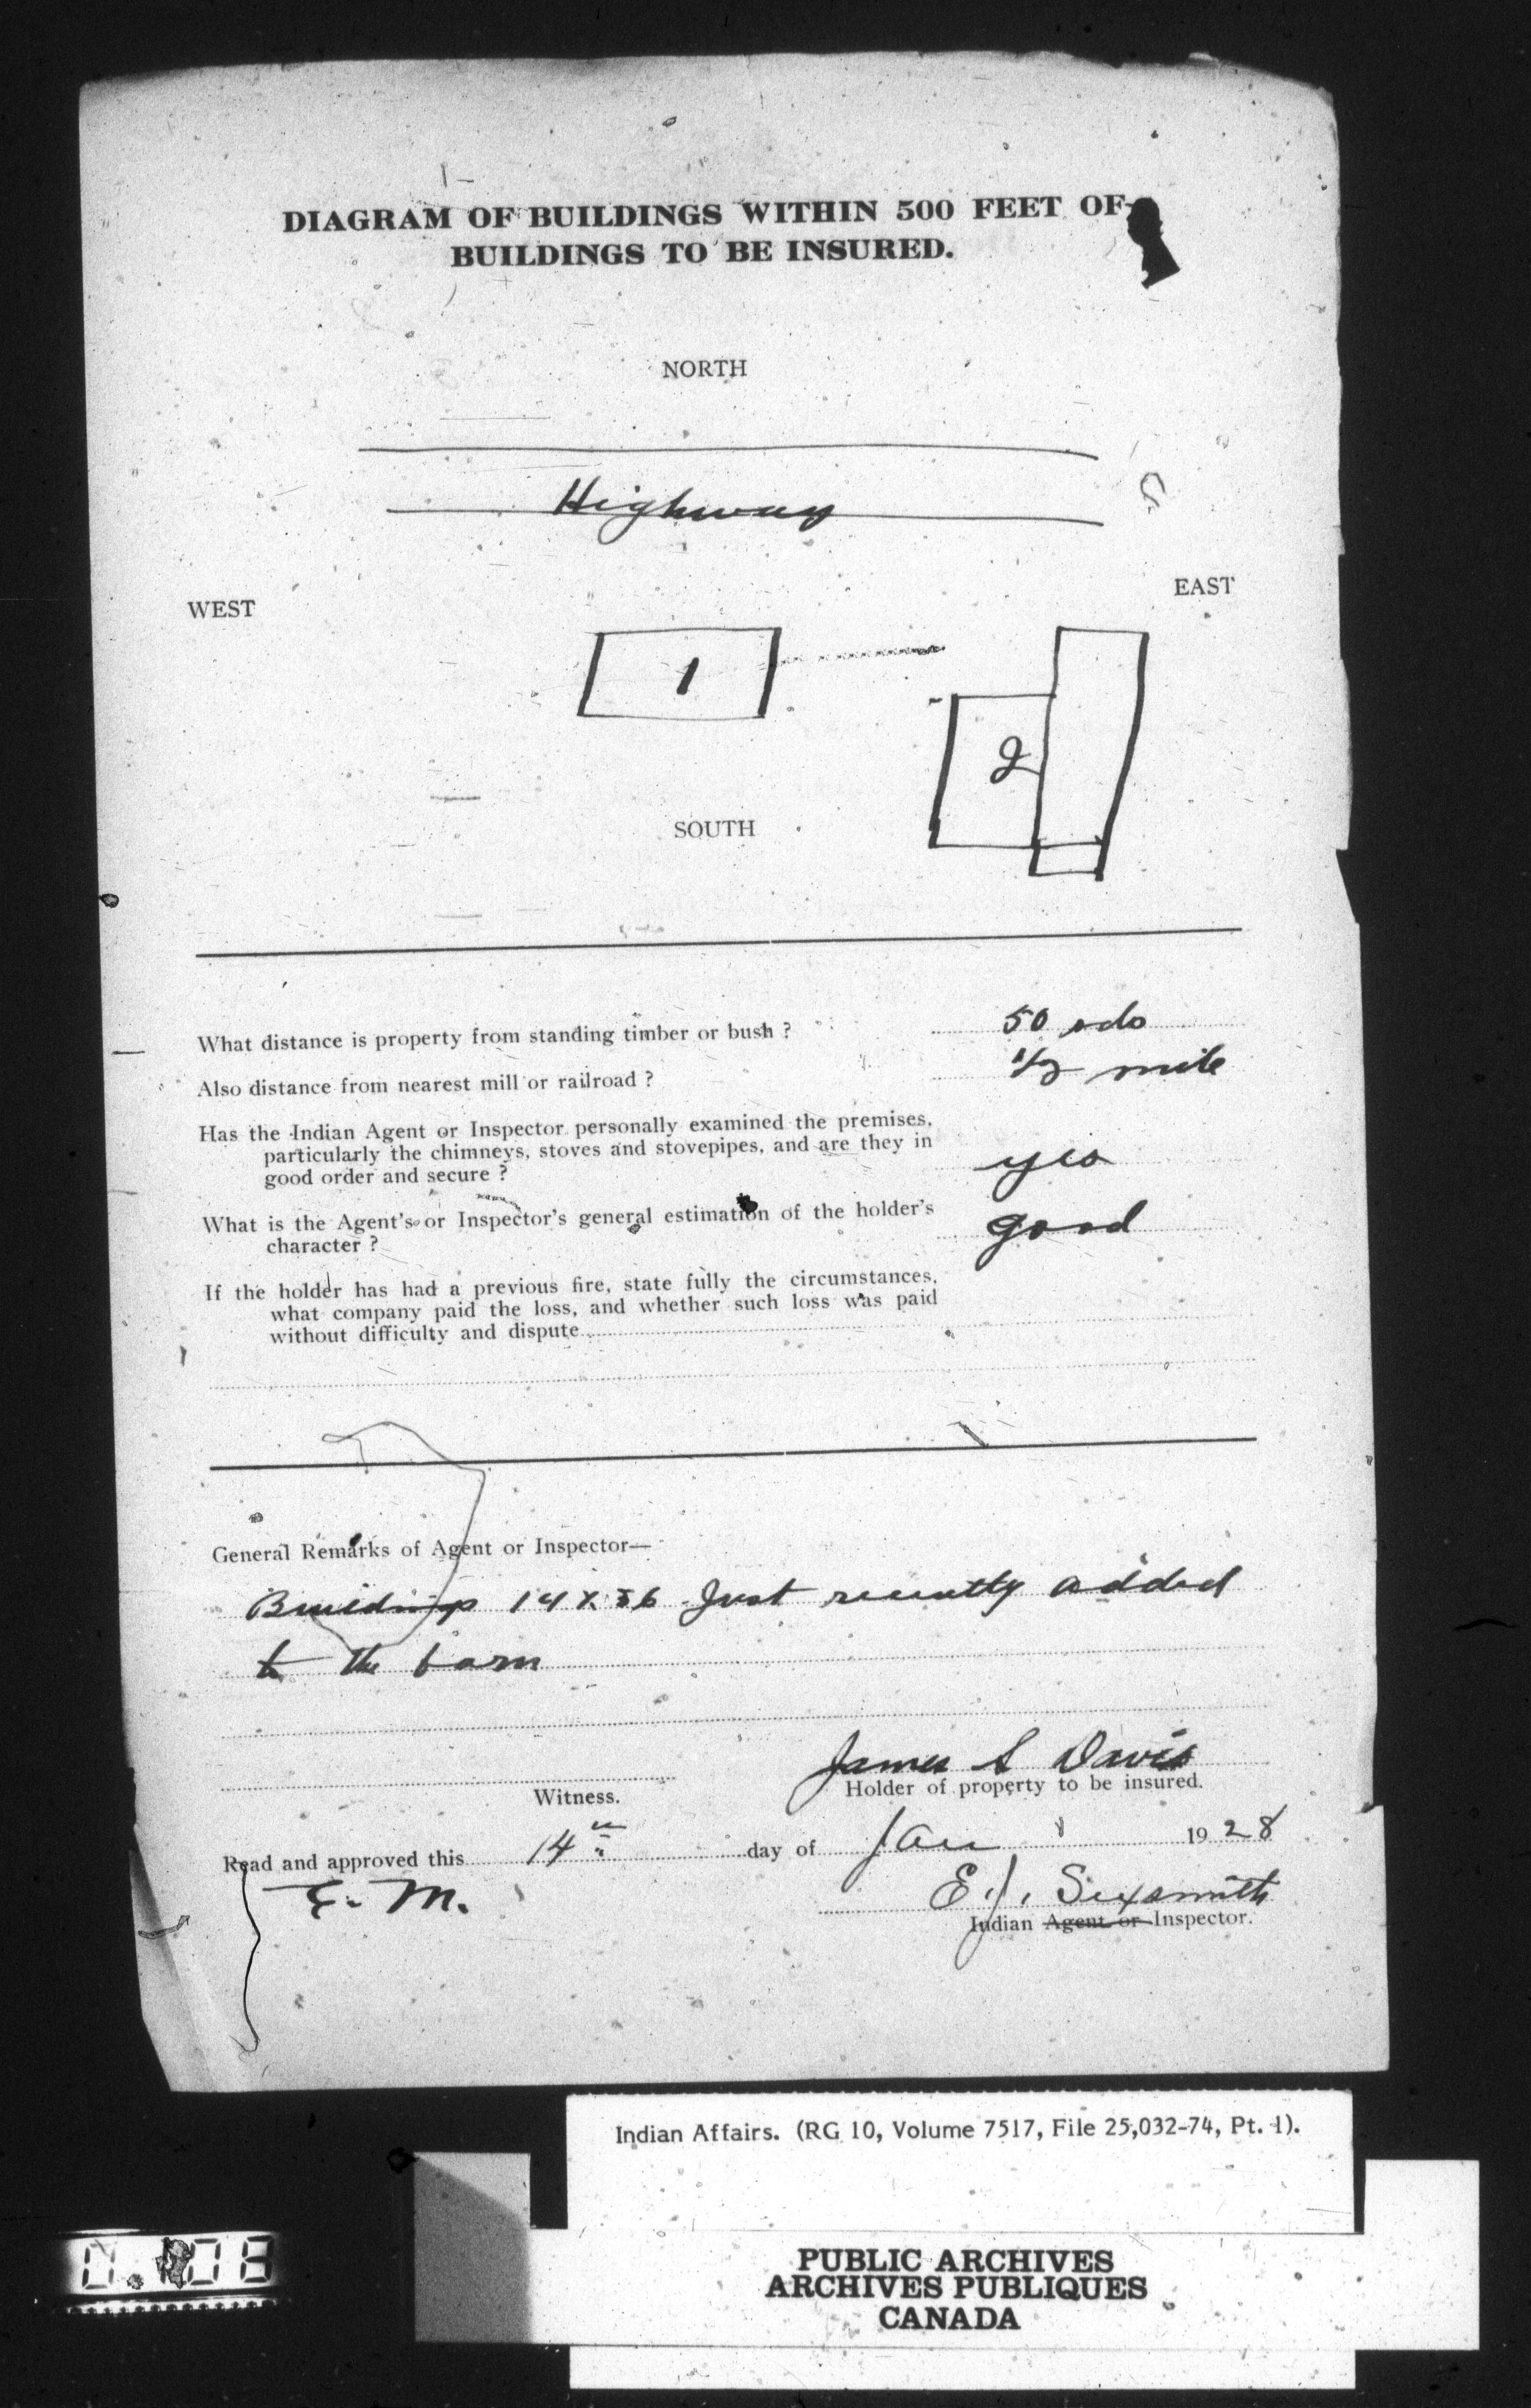 DIAGRAM OF BUILDINGS WITHIN 500 FEET OF
BUILDINGS TO BE INSURED.
NORTH
Highway
WEST
EAST
1
2
SOUTH
What distance is property from standing timber or bush ? 50 rds
Also distance from nearest mill or railroad ? 1/2 mile
Has the Indian Agent or Inspector personally examined the premises,
particularly the chimneys, stoves and stovepipes, and are they in
good order and secure ? yes
What is the Agent's or Inspector's general estimation of the holder's
character ? good
If the holder has had a previous fire, state fully the circumstances,
what company paid the loss, and whether such loss was paid
without difficulty and dispute
General Remarks of Agent or Inspector—
Buildings 14 X 36 Just recently added
to the barn
James S Davis
Witness. Holder of property to be insured.
Read and approved this 14th day of Jan 1928
E. M.
E. J. Sexsmith
Indian Agent or Inspector.
Indian Affairs. (RG 10, Volume 7517, File 25,032-74, Pt. 1).
PUBLIC ARCHIVES
ARCHIVES PUBLIQUES
CANADA